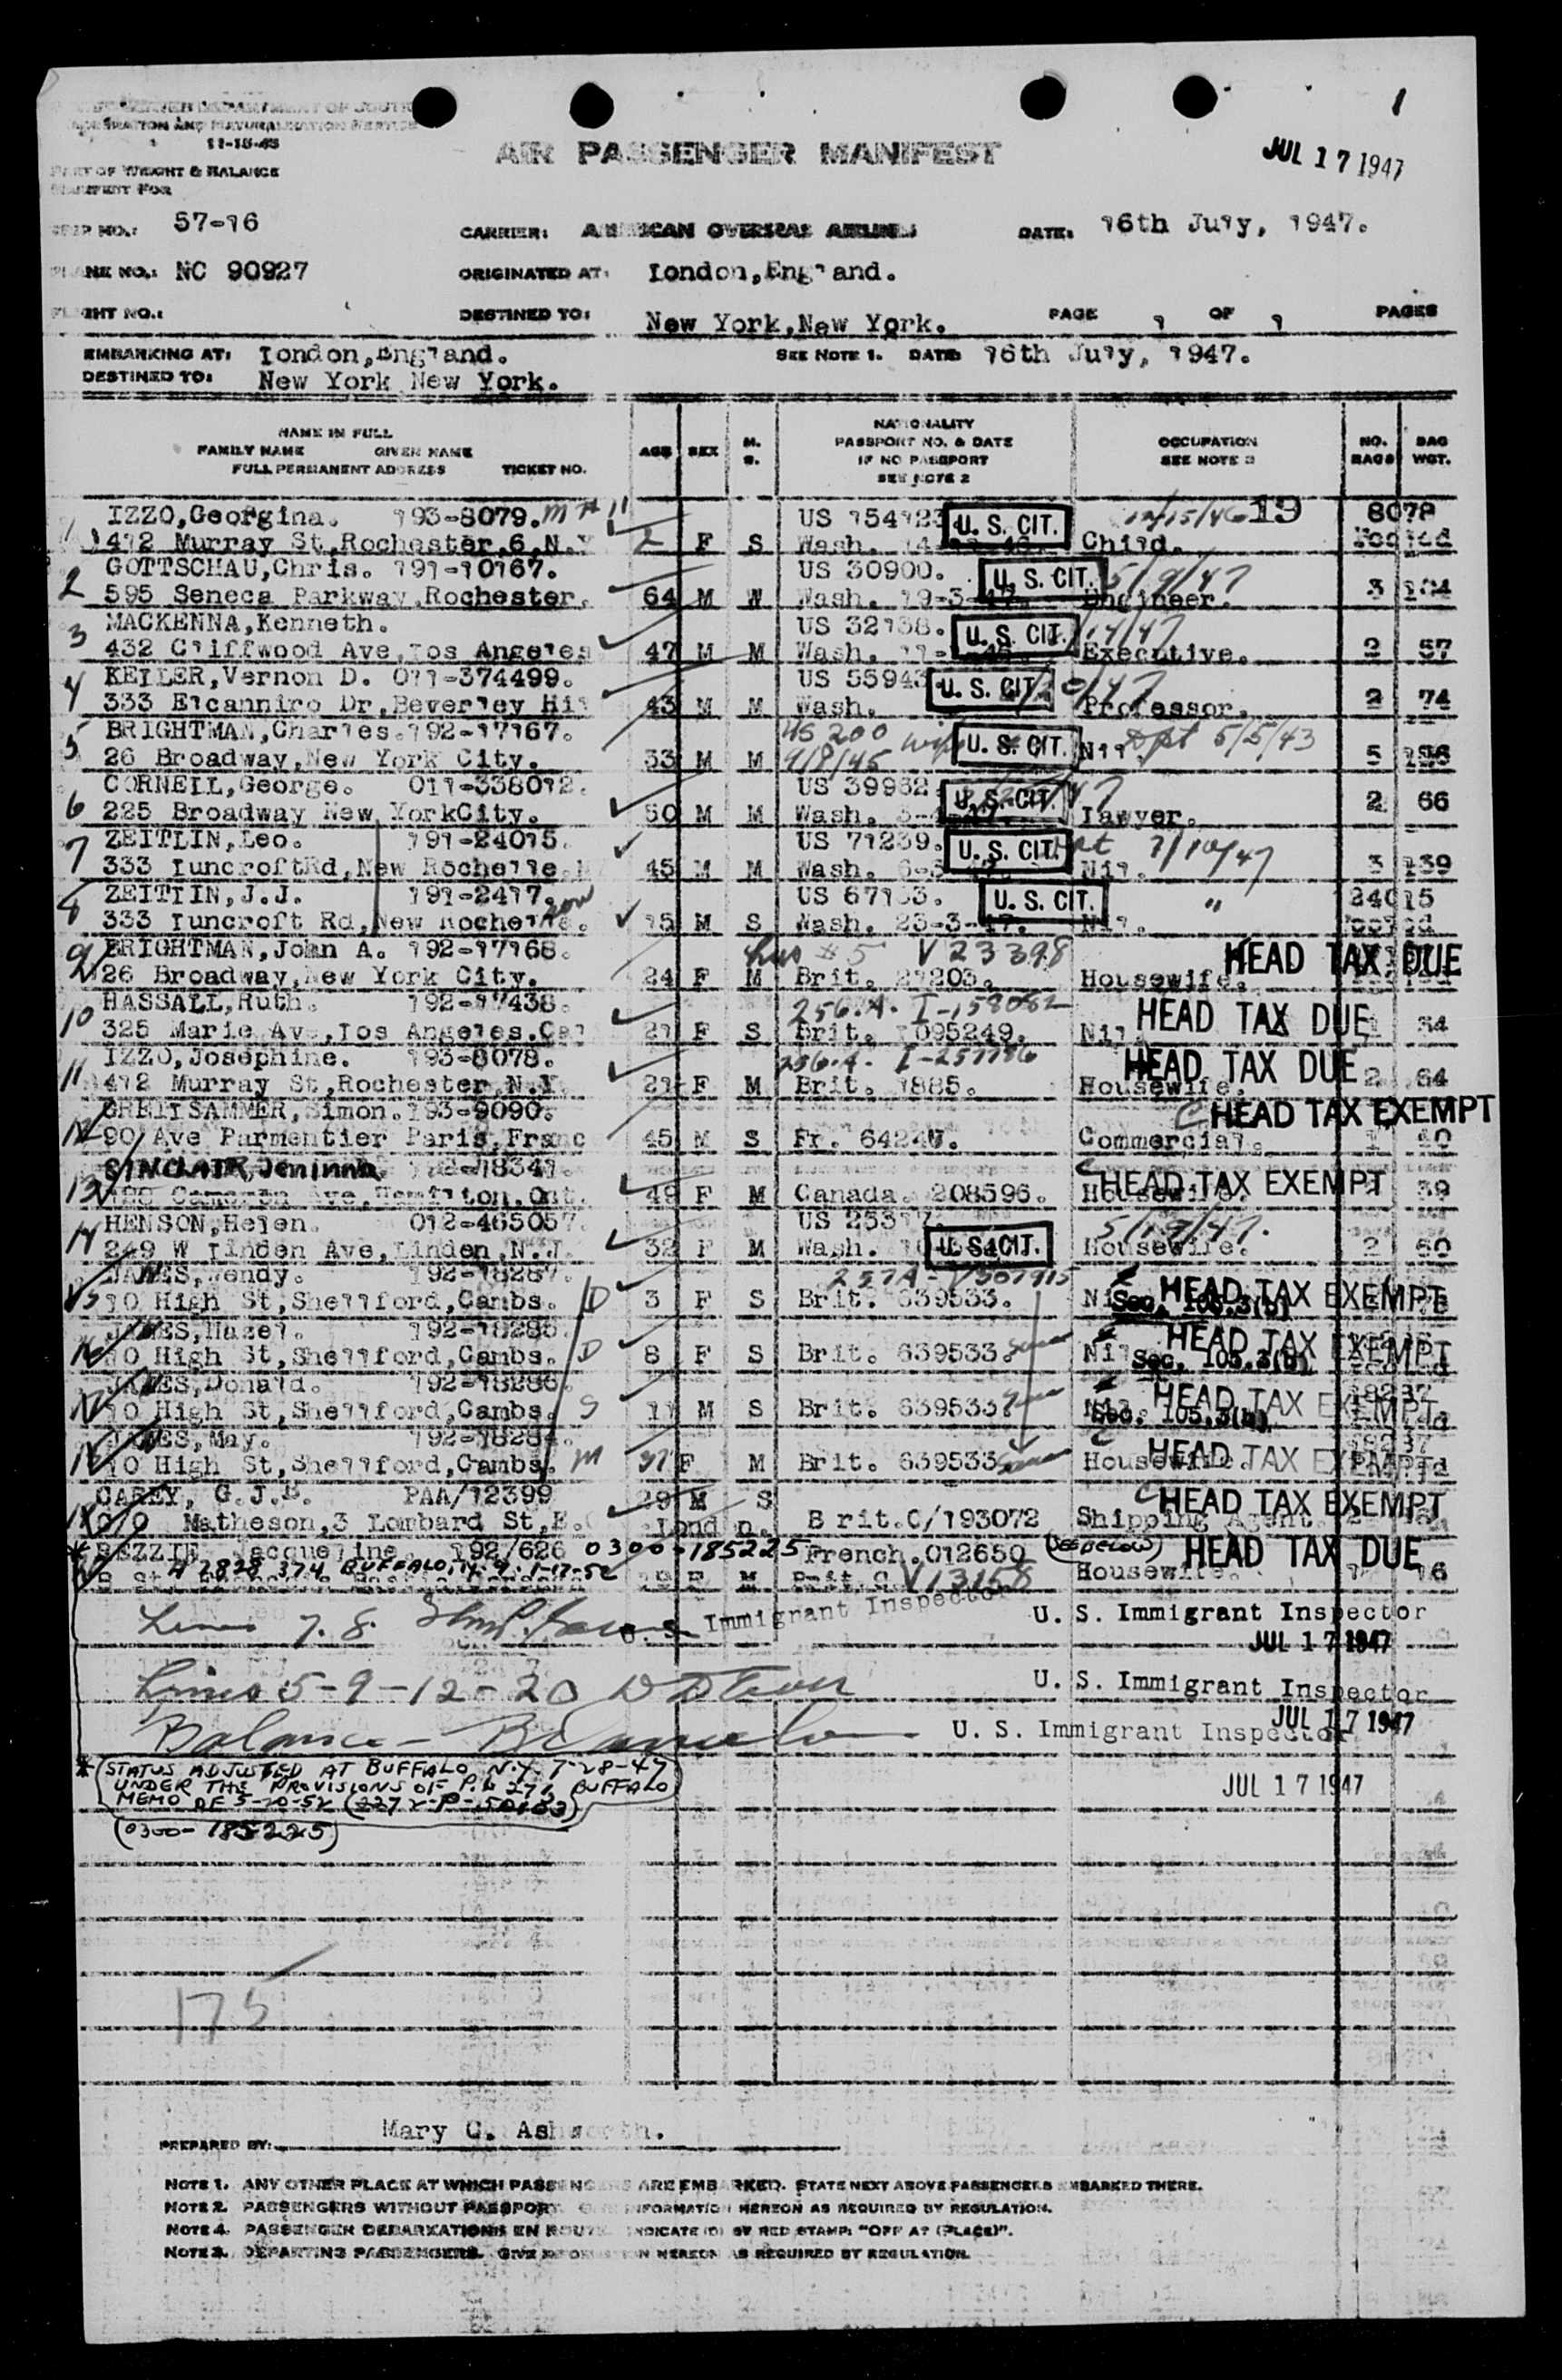 1
11-15-45
AIR PASSENGER MANIFEST
JUL 17 1947
PART OF WEIGHT & BALANCE
MANIFEST FOR
TRIP NO.: 57-16
CARRIER: AMERICAN OVERSEAS AIRLINES
DATE: 16th July, 1947.
PLANE NO.: NC 90927
ORIGINATED AT: London,England.
FLIGHT NO.:
DESTINED TO: New York,New York.
PAGE 1 OF 1 PAGES
EMBARKING AT: London,England.
SEE NOTE 1. DATE: 16th July, 1947.
DESTINED TO: New York New York.
NAME IN FULL
FAMILY NAME GIVEN NAME
FULL PERMANENT ADDRESS TICKET NO.
AGE
SEX
M.
S.
NATIONALITY
PASSPORT NO. & DATE
IF NO PASSPORT
SEE NOTE 2
OCCUPATION
SEE NOTE 3
NO.
BAGS
BAG
WGT.
IZZO,Georgina. 193-8079. US 154123 U. S. CIT. 12/15/46 19 8078
1 412 Murray St,Rochester,6,N.Y 2 F S Wash. Child. Pooled
GOTTSCHAU,Chris. 191-10167. US 30900. U. S. CIT. 5/9/47
2 595 Seneca Parkway,Rochester. 64 M W Wash. 19-3-47. Engineer. 3
MACKENNA,Kenneth. US 32138. U. S. CIT. /14/47
3 432 Cliffwood Ave,Los Angeles 47 M M Wash. Executive. 2 57
KELLER,Vernon D. 011-374499. US 55943 U. S. CIT.
4 333 Elcanniro Dr,Beverley Hil 43 M M Wash. Professor. 2 74
BRIGHTMAN,Charles.192-17167. U. S. CIT. Dpt 5/5/43
5 26 Broadway,New York City. 33 M M 9/8/45 Nil. 5
CORNELL,George. 011-338012. US 39982. U. S. CIT.
6 225 Broadway New YorkCity. 50 M M Wash. Lawyer. 2 66
ZEITLIN,Leo. 191-24015. US 71239. U. S. CIT. 7/10/47
7 333 LuncroftRd,New Rochelle. 45 M M Wash. Nil. 3 139
ZEITLIN,J.J. 191-2417. US 67133. U. S. CIT. " 24015
8 333 Luncroft Rd,New Rochelle. 15 M S Wash. 23-3-47. Nil. Pooled
BRIGHTMAN,John A. 192-17168. #5 V 23398 HEAD TAX DUE
9 26 Broadway,New York City. 24 F M Brit. 21203. Housewife.
HASSALL,Ruth. 192-17438. 256.A. I-158082 HEAD TAX DUE
10 325 Marie Ave,Los Angeles.Cal 21 F S Brit. 1095249. Nil. 34
IZZO,Josephine. 193-8078. 256.A. HEAD TAX DUE
11 412 Murray St,Rochester,N.Y. 21 F M Brit. 1885. Housewife. 2 64
Simon.193-9090. HEAD TAX EXEMPT
12 90 Ave Parmentier Paris,Franc 45 M S Fr. Commercial. 1 40
SINCLAIR, 192-18341.
13 Hamilton.Ont. 49 F M Canada. 208596. Housewife. HEAD TAX EXEMPT 39
HENSON,Helen. 012-465057. US U. S. CIT. 5/19/47.
14 249 W Linden Ave,Linden,N.J. 32 F M Wash. Housewife. 2 60
JAMES,Wendy. 192-18287. 257A-V307915 HEAD TAX EXEMPT
15 10 High St,Shellford,Cambs. D 3 F S Brit. 639533. Nil. Sec. 105.3(b)
JAMES,Hazel. 192-18285. HEAD TAX EXEMPT
16 10 High St,Shellford,Cambs. D 8 F S Brit. 639533. Same Nil. Sec. 105.3(b)
JAMES,Donald. 192-18286. HEAD TAX EXEMPT 18287
17 10 High St,Shellford,Cambs. S 11 M S Brit. 639533. Same Nil. Sec. 105.3(b)
JAMES,May. 192-18284. HEAD TAX EXEMPT 18287
18 10 High St,Shellford,Cambs. M 37 F M Brit. 639533 Same Housewife.
CAREY, G.J.B. PAA/12399 29 M S HEAD TAX EXEMPT
19 C/O Matheson,3 Lombard St,E. London. Brit.C/193072 Shipping Agent.
* Jacqueline. 192/626 0300-185225 French.012650 (SEE BELOW) HEAD TAX DUE
BUFFALO,N.Y. F M V 13158 Housewife. 16
Lines 7. 8. U. S. Immigrant Inspector
U. S. Immigrant Inspector
JUL 17 1947
Lines 5-9-12-20
U. S. Immigrant Inspector
JUL 17 1947
Balance -
U. S. Immigrant Inspector
JUL 17 1947
* (STATUS ADJUSTED AT BUFFALO N.Y. 7-28-47
UNDER THE PROVISIONS OF P.L. 271, BUFFALO
MEMO OF 5-20-52
(0300-185225)
175
PREPARED BY: Mary C. Ashworth.
NOTE 1. ANY OTHER PLACE AT WHICH PASSENGERS ARE EMBARKED. STATE NEXT ABOVE PASSENGERS EMBARKED THERE.
NOTE 2. PASSENGERS WITHOUT PASSPORT. GIVE INFORMATION HEREON AS REQUIRED BY REGULATION.
NOTE 4. PASSENGER DEBARKATIONS EN ROUTE. INDICATE (D) BY RED STAMP: "OFF AT (PLACE)".
NOTE 3. DEPARTING PASSENGERS. GIVE INFORMATION HEREON AS REQUIRED BY REGULATION.